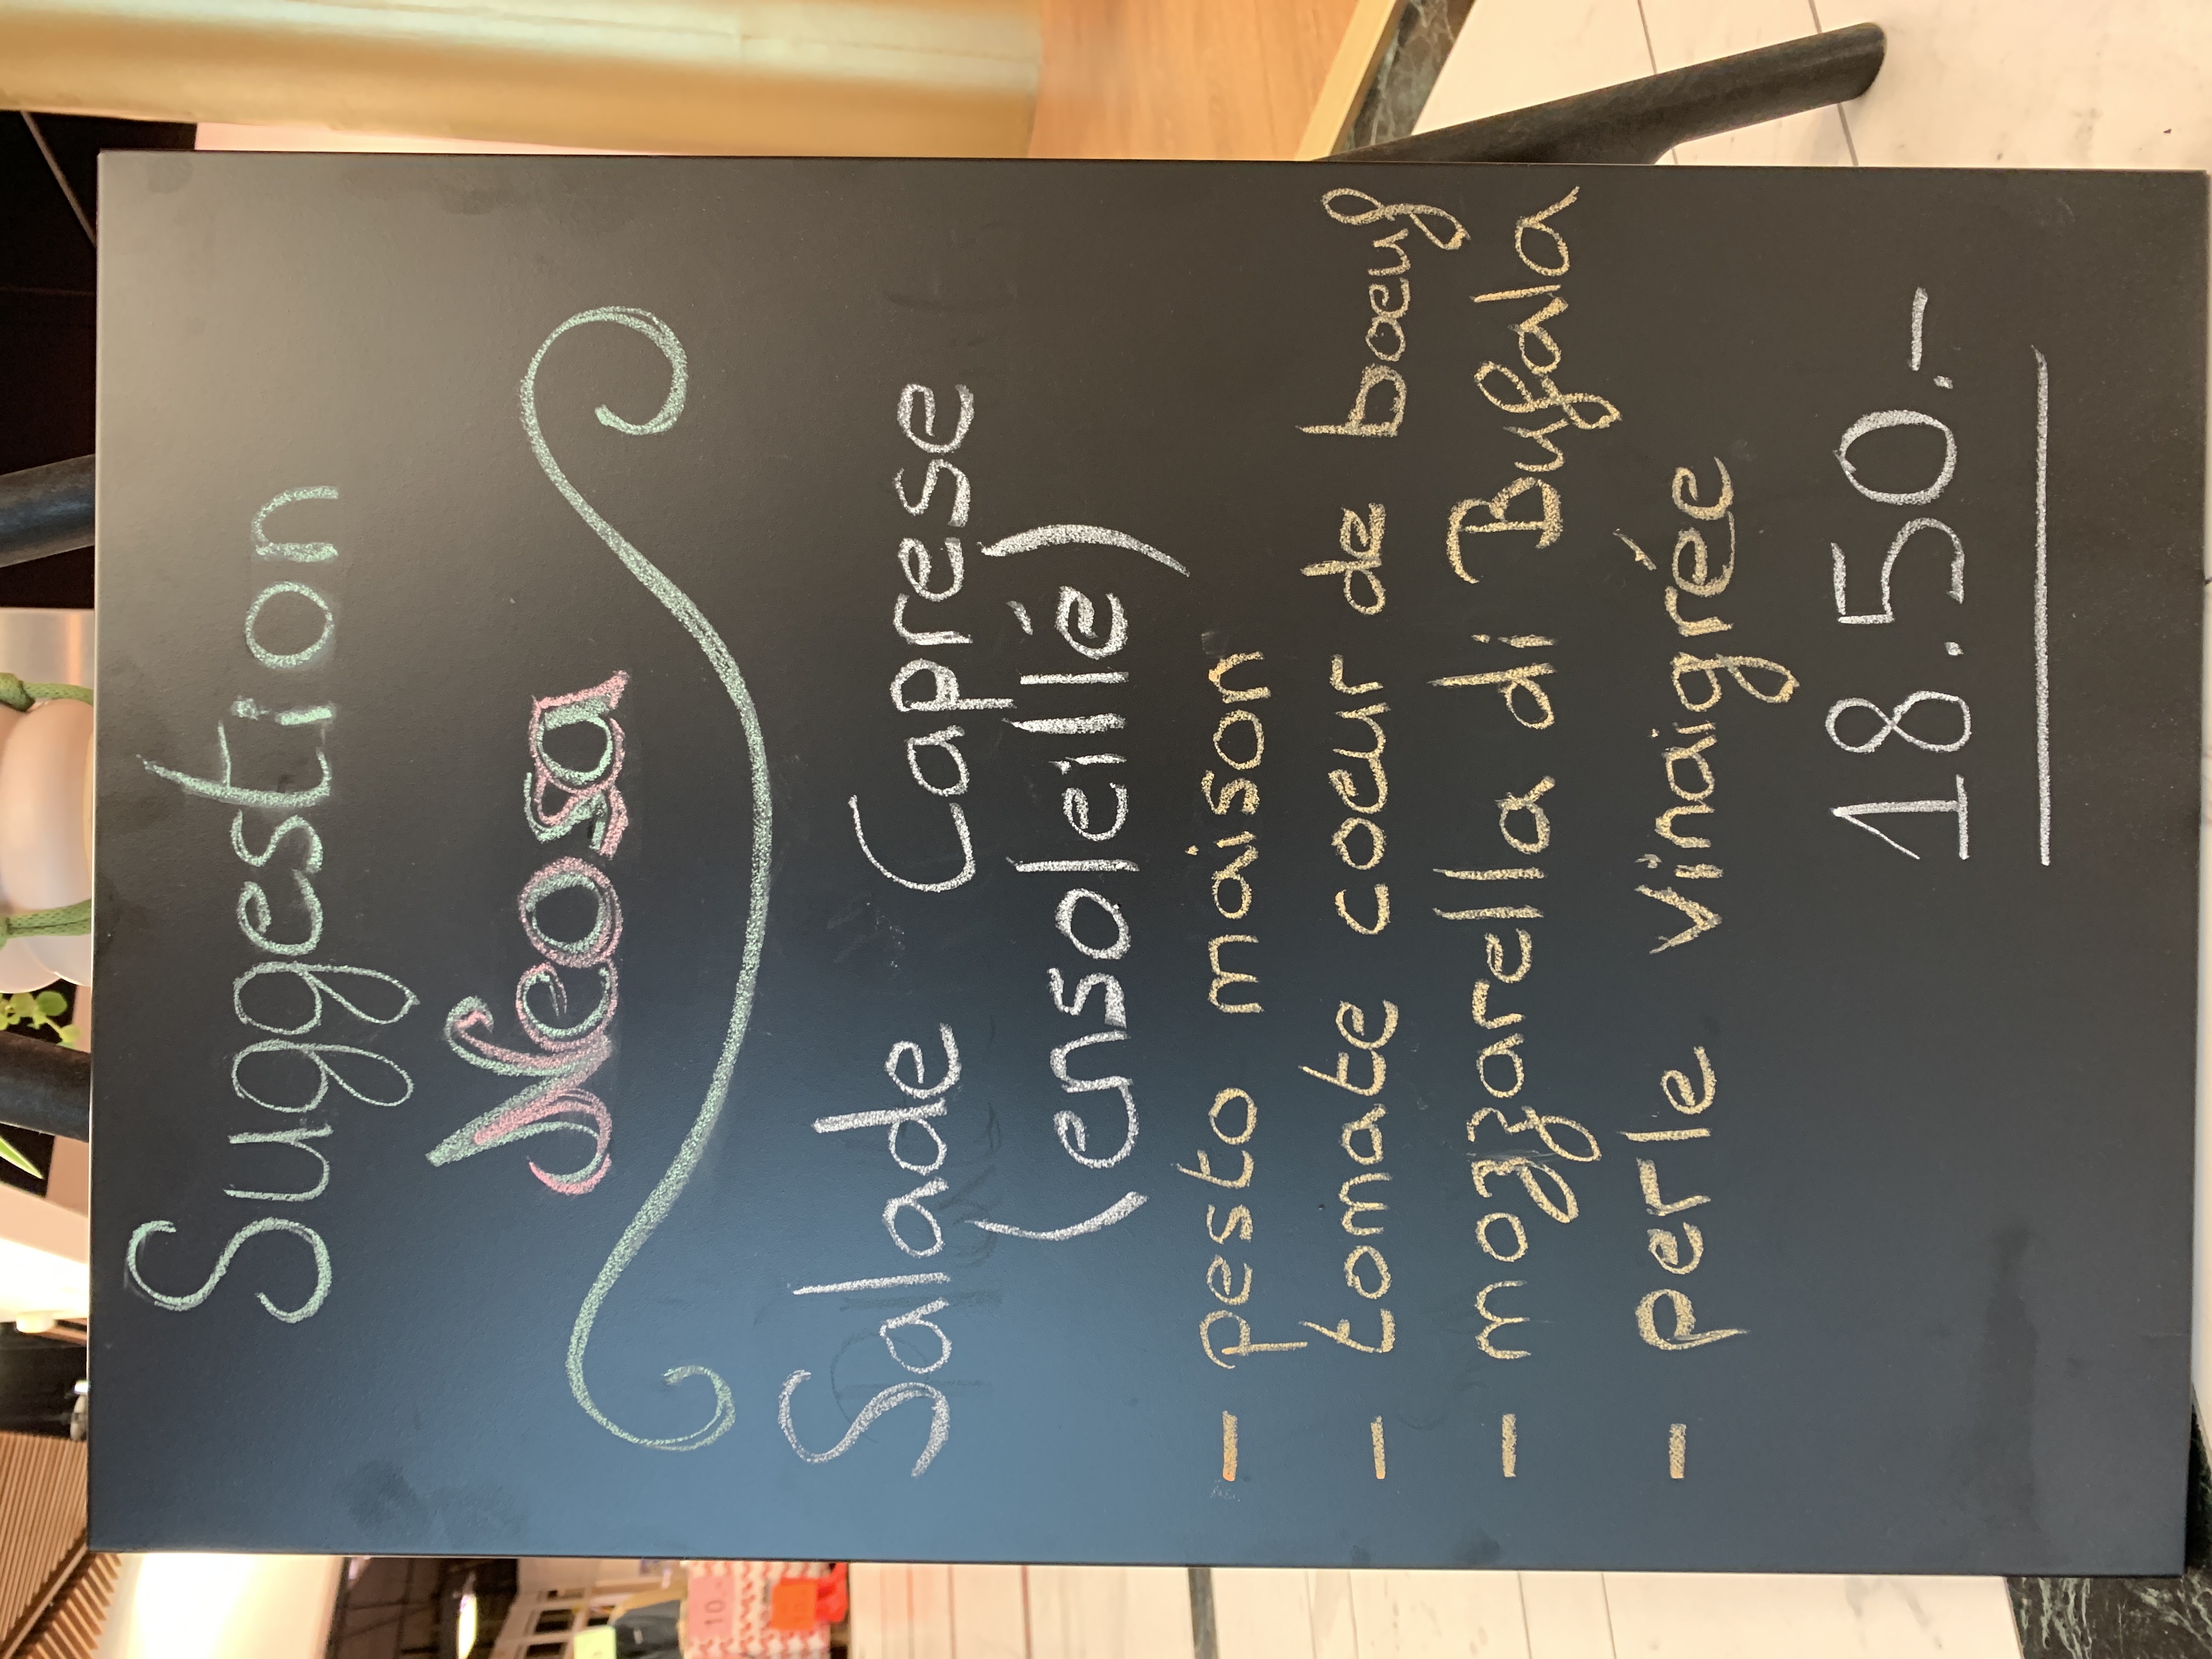 Suggestion
Neosa
Salade Caprese
(ensoleillé)
- pesto maison
- tomate coeur de boeuf
- mozzarella di Bufala
- perle vinaigrée
18.50.-
10.-